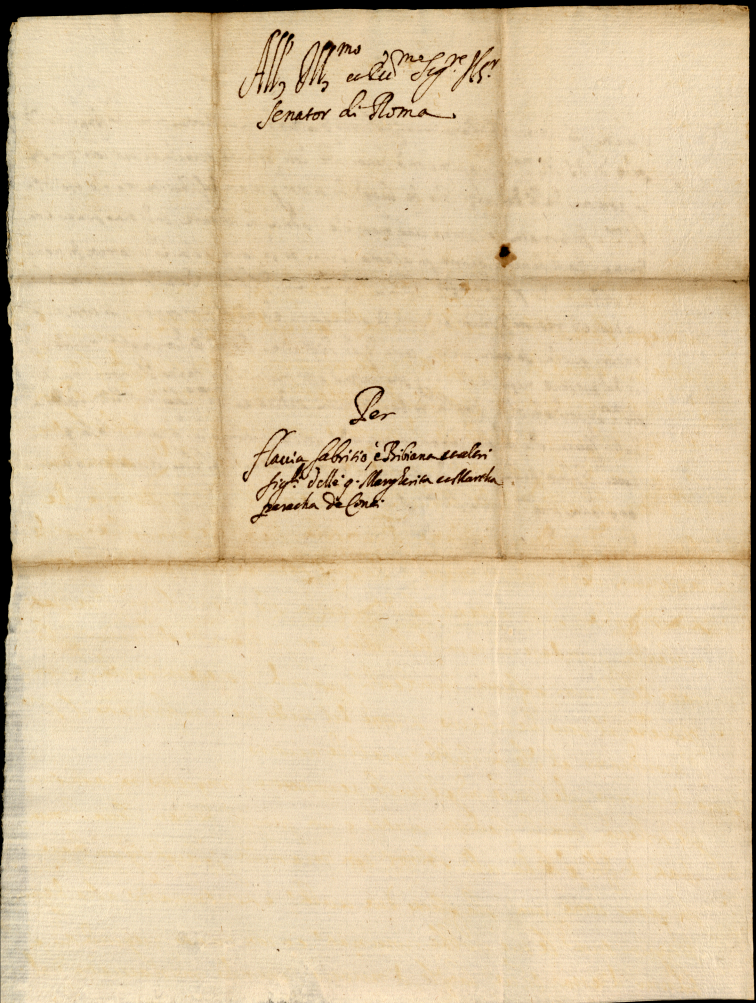 All' Ill.mo et Ecc.mo Sig.re Il Sig.r
Senator di Roma
Per
Flavia fabritio, è Bibiana et altri
figli delle q. Margherita et Martha
de Conti